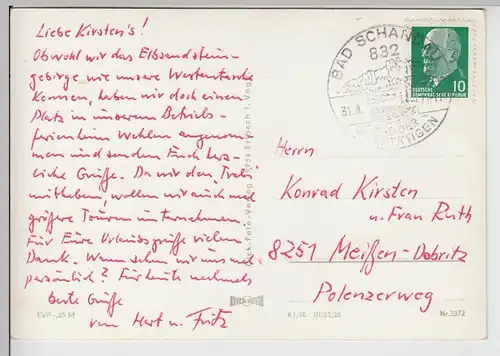 Liebe Kirsten's!
Obwohl wir das Elbsandstein-
gebirge wie unsere Westentasche
kennen, haben wir doch einen
Platz in unserem Betriebs-
ferienheim Wehlen angenom-
men und senden Euch herz-
liche Grüße. Da wir den "Trabi"
mithaben, wollen wir auch mal
größere Touren unternehmen.
Für Eure Urlaubsgrüße vielen
Dank. Wann sehen wir uns mal
persönlich? Für heute nochmals
beste Grüße
von Hert u. Fritz
EVP -,25 M
BAD SCHANDAU
832
TÄTIGEN
10
DEUTSCHE
DEMOKRATISCHE REPUBLIK
Herrn
Konrad Kirsten
u. Frau Ruth
8251 Meißen-Dobritz
Polenzerweg
Nr. 3372